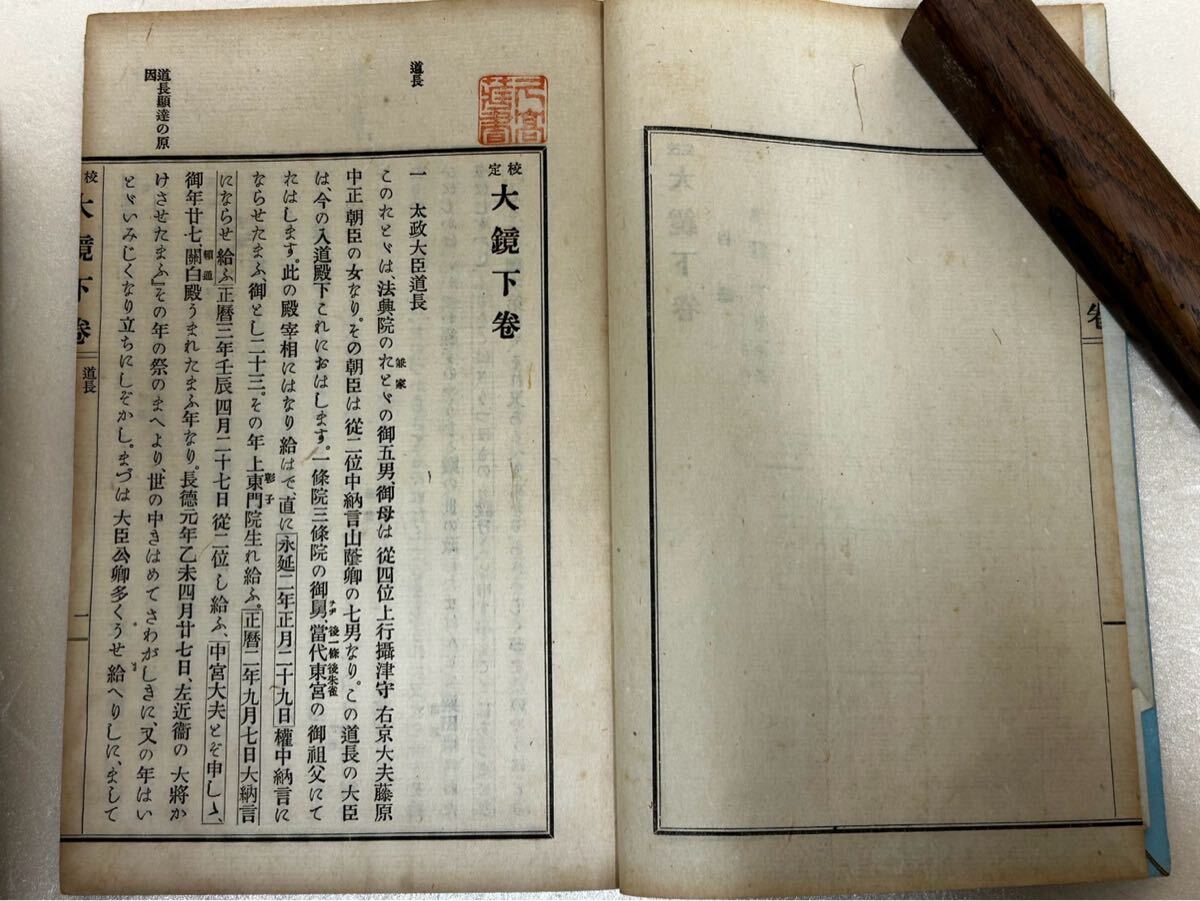 道長
道長顯達の原因
元高藏書
校定 大鏡下卷
一 太政大臣道長
このおとゞは、法興院のおとゞの御五男、御母は從四位上行攝津守右京大夫藤原
兼家
中正朝臣の女なり。その朝臣は從二位中納言山蔭卿の七男なり。この道長の大臣
は、今の入道殿下これにおはします。一條院三條院の御舅、當代東宮の御祖父にて
ヲヂ 後一條 後朱雀
おはします。此の殿宰相にはなり給はで、直に永延二年正月二十九日權中納言に
ならせたまふ、御とし二十三。その年上東門院生れ給ふ。正曆二年九月七日大納言
彰子
にならせ給ふ正曆三年壬辰四月二十七日從二位し給ふ、中宮大夫とぞ申しゝ、
御年廿七、關白殿うまれたまふ年なり。長德元年乙未四月廿七日、左近衞の大將か
賴通
けさせたまふ』その年の祭のまへより、世の中きはめてさわがしきに、又の年はい
とゞいみじくなり立ちにしぞかし。まづは大臣公卿多くうせ給へりしに、まして
校 大鏡下卷 道長 一
卷